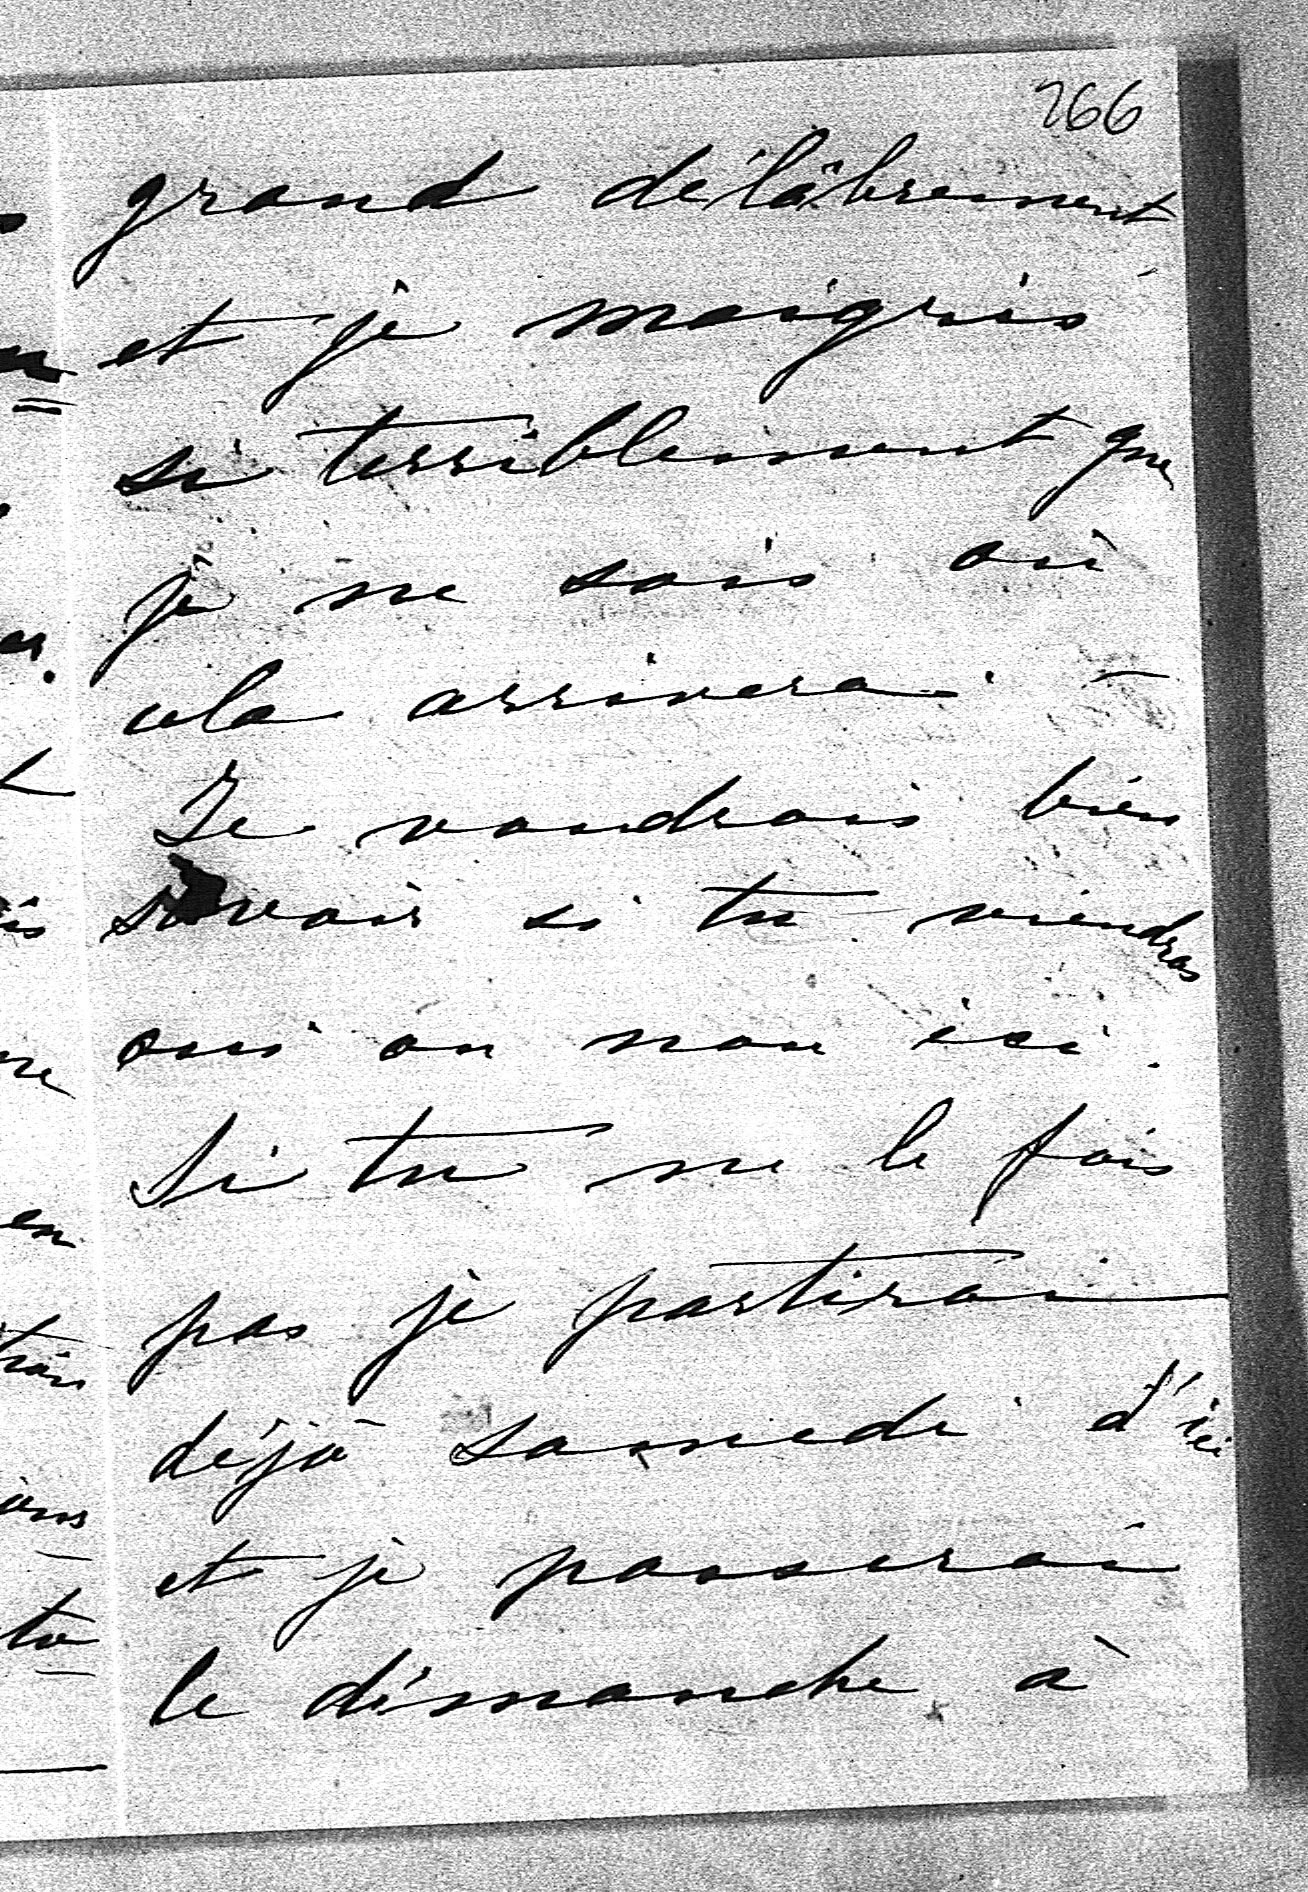 266
grand délâbrement
et je maigris
si terriblement que
je ne sais où
cela arrivera. —
Je voudrais bien
savoir si tu viendras
oui ou non ici.
Si tu ne le fais
pas je partirai
déjà samedi d'ici
et je passerai
le dimanche à